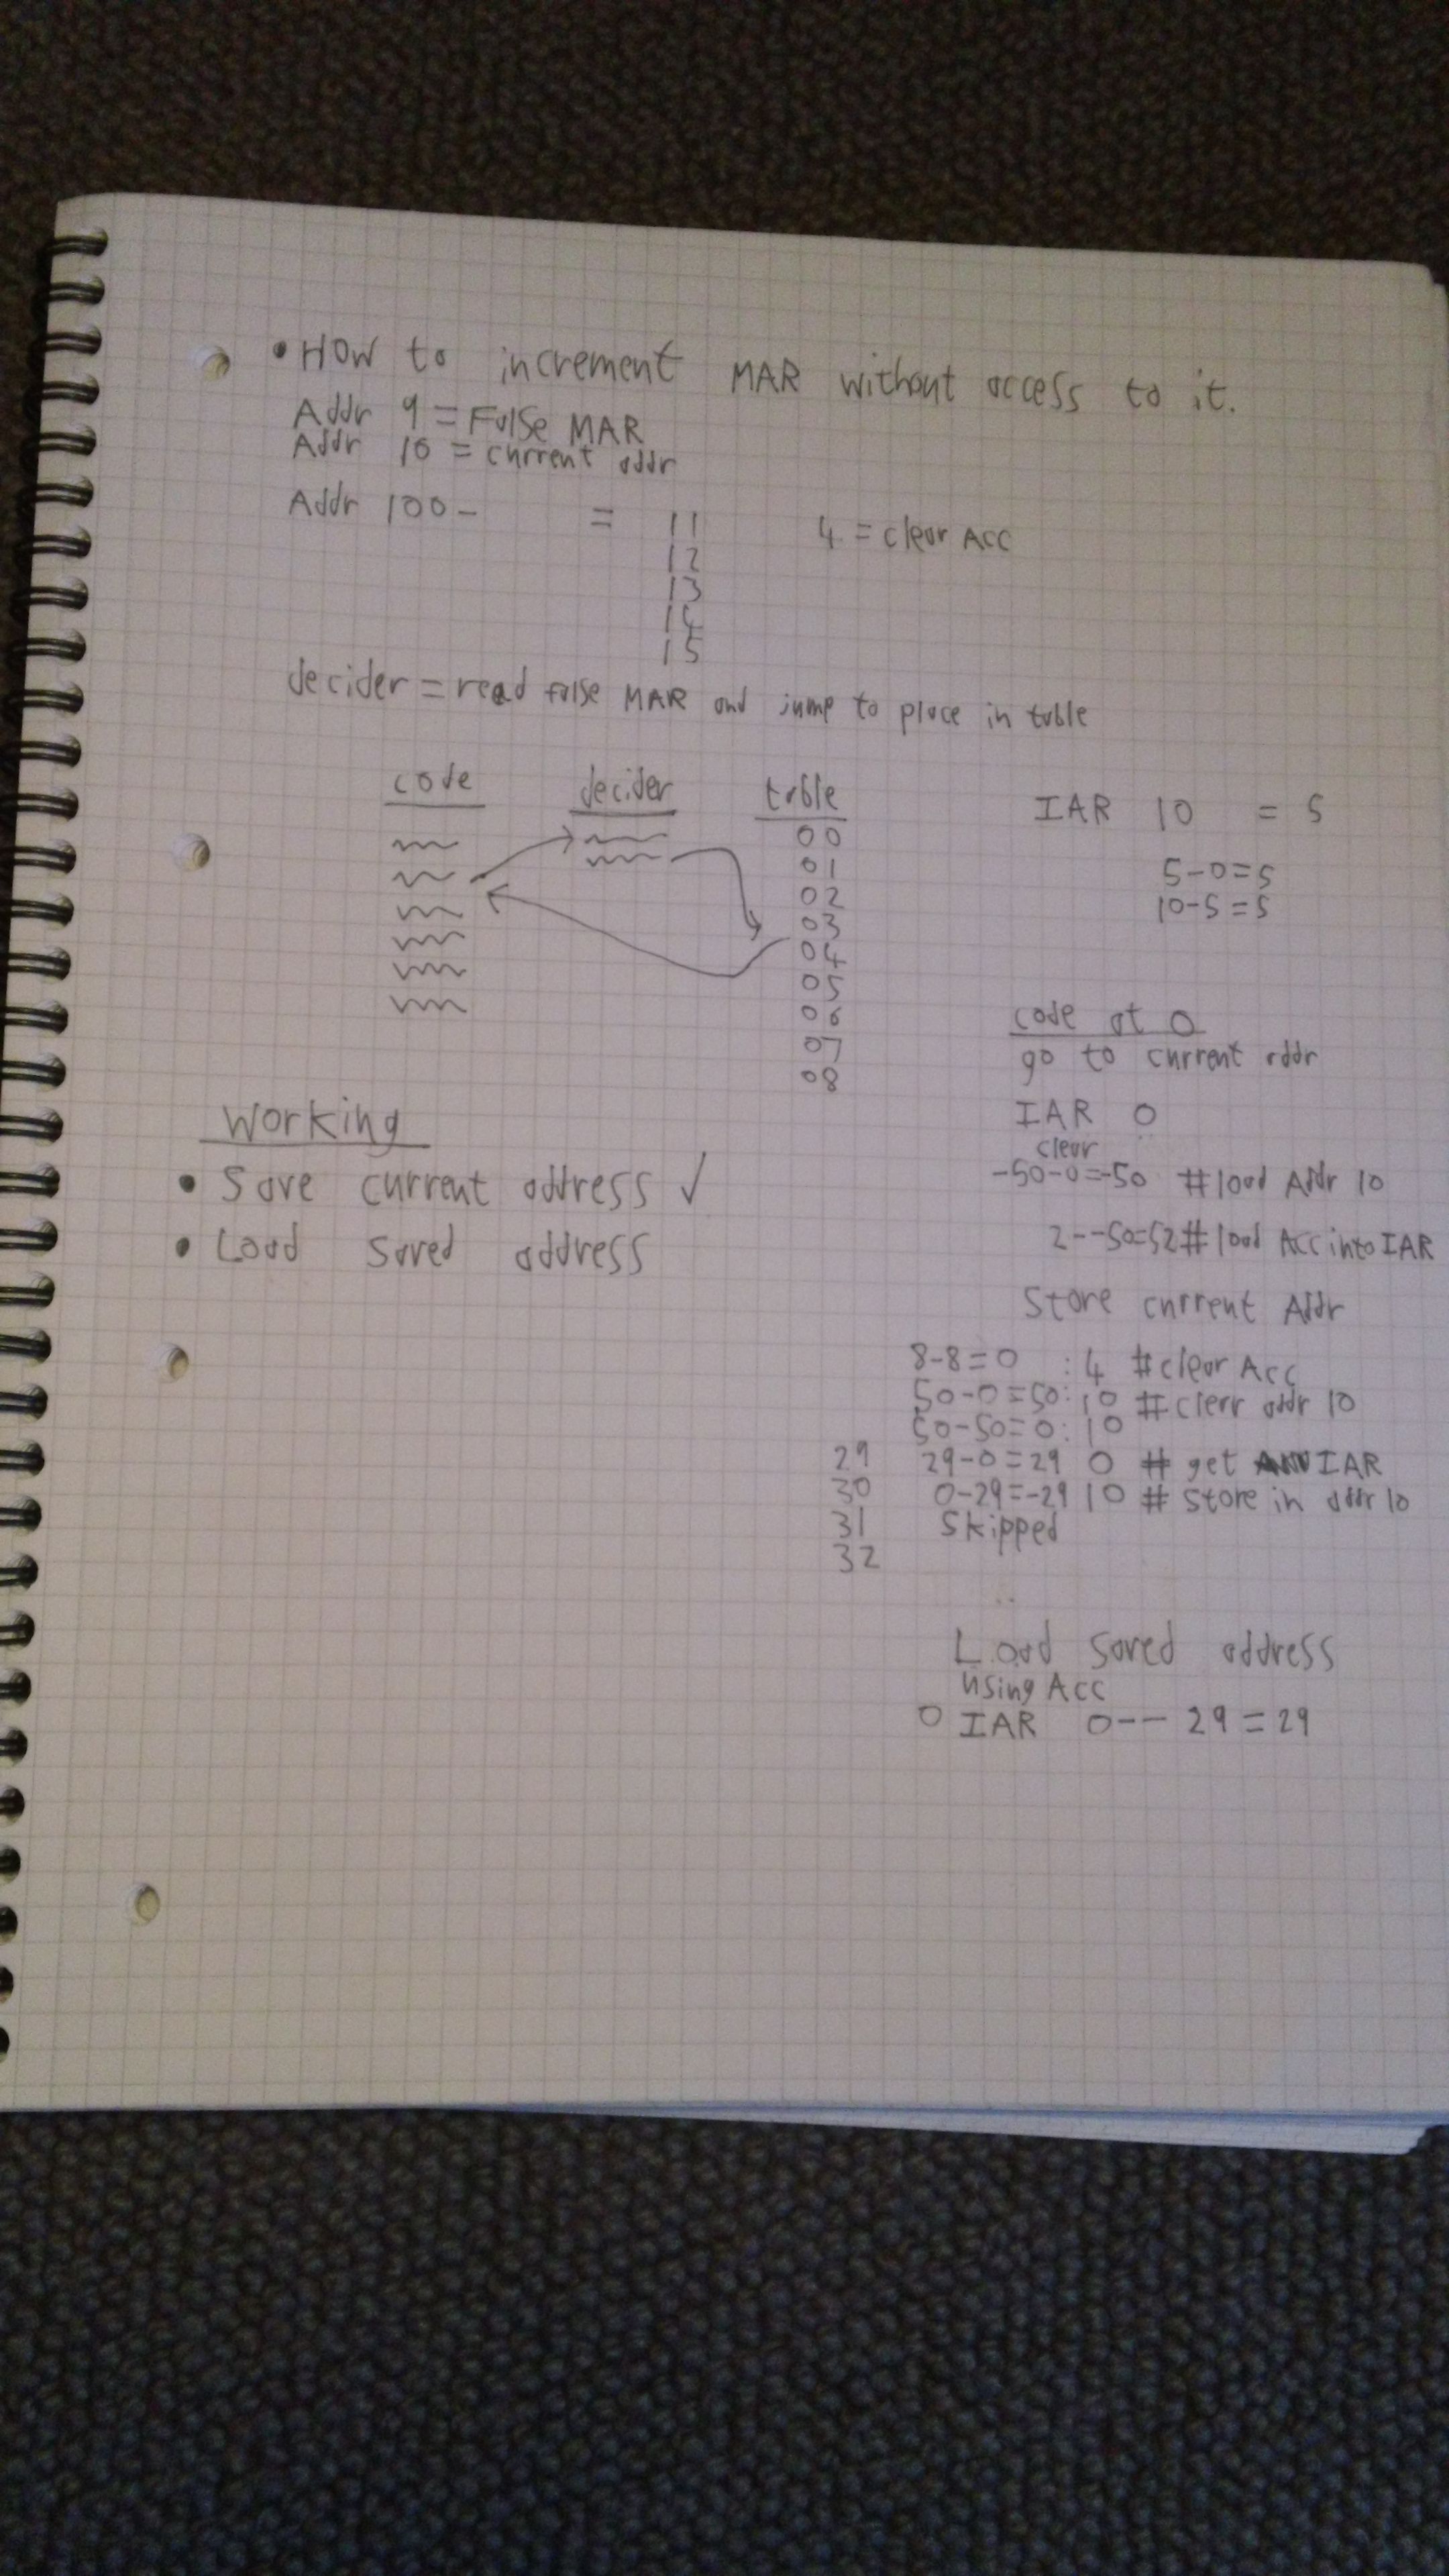 • How to increment MAR without access to it.
Addr 9 = False MAR
Addr 10 = current addr
Addr 100- = 11 4 = clear Acc
12
13
14
15
decider = read false MAR and jump to place in table
code decider table
00
01
02
03
04
05
06
07
08
IAR 10 = 5
5-0=5
10-5=5
code at 0
go to current addr
IAR 0
clear
-50-0=-50 #load Addr 10
2--50=52 # load Acc into IAR
Working
• Save current address ✓
• Load saved address
Store current Addr
8-8=0 :4 #clear Acc
50-0=50:10 #clerr addr 10
50-50=0:10
29 29-0=29 0 # get IAR
30 0-29=-29 10 # Store in addr 10
31 Skipped
32
Load saved address
using Acc
0 IAR 0-- 29 = 29